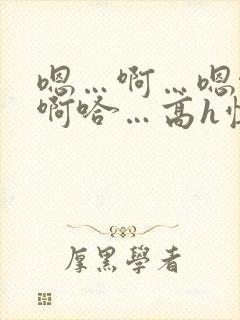 嗯…啊…嗯
啊哈…高h
厚黑學者